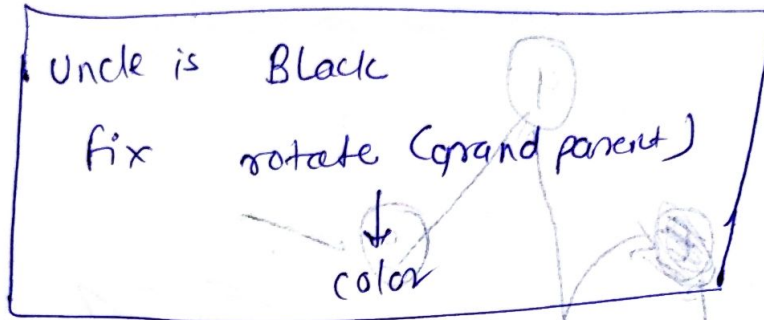 Uncle is Black
fix rotate (grand parent)
↓
color